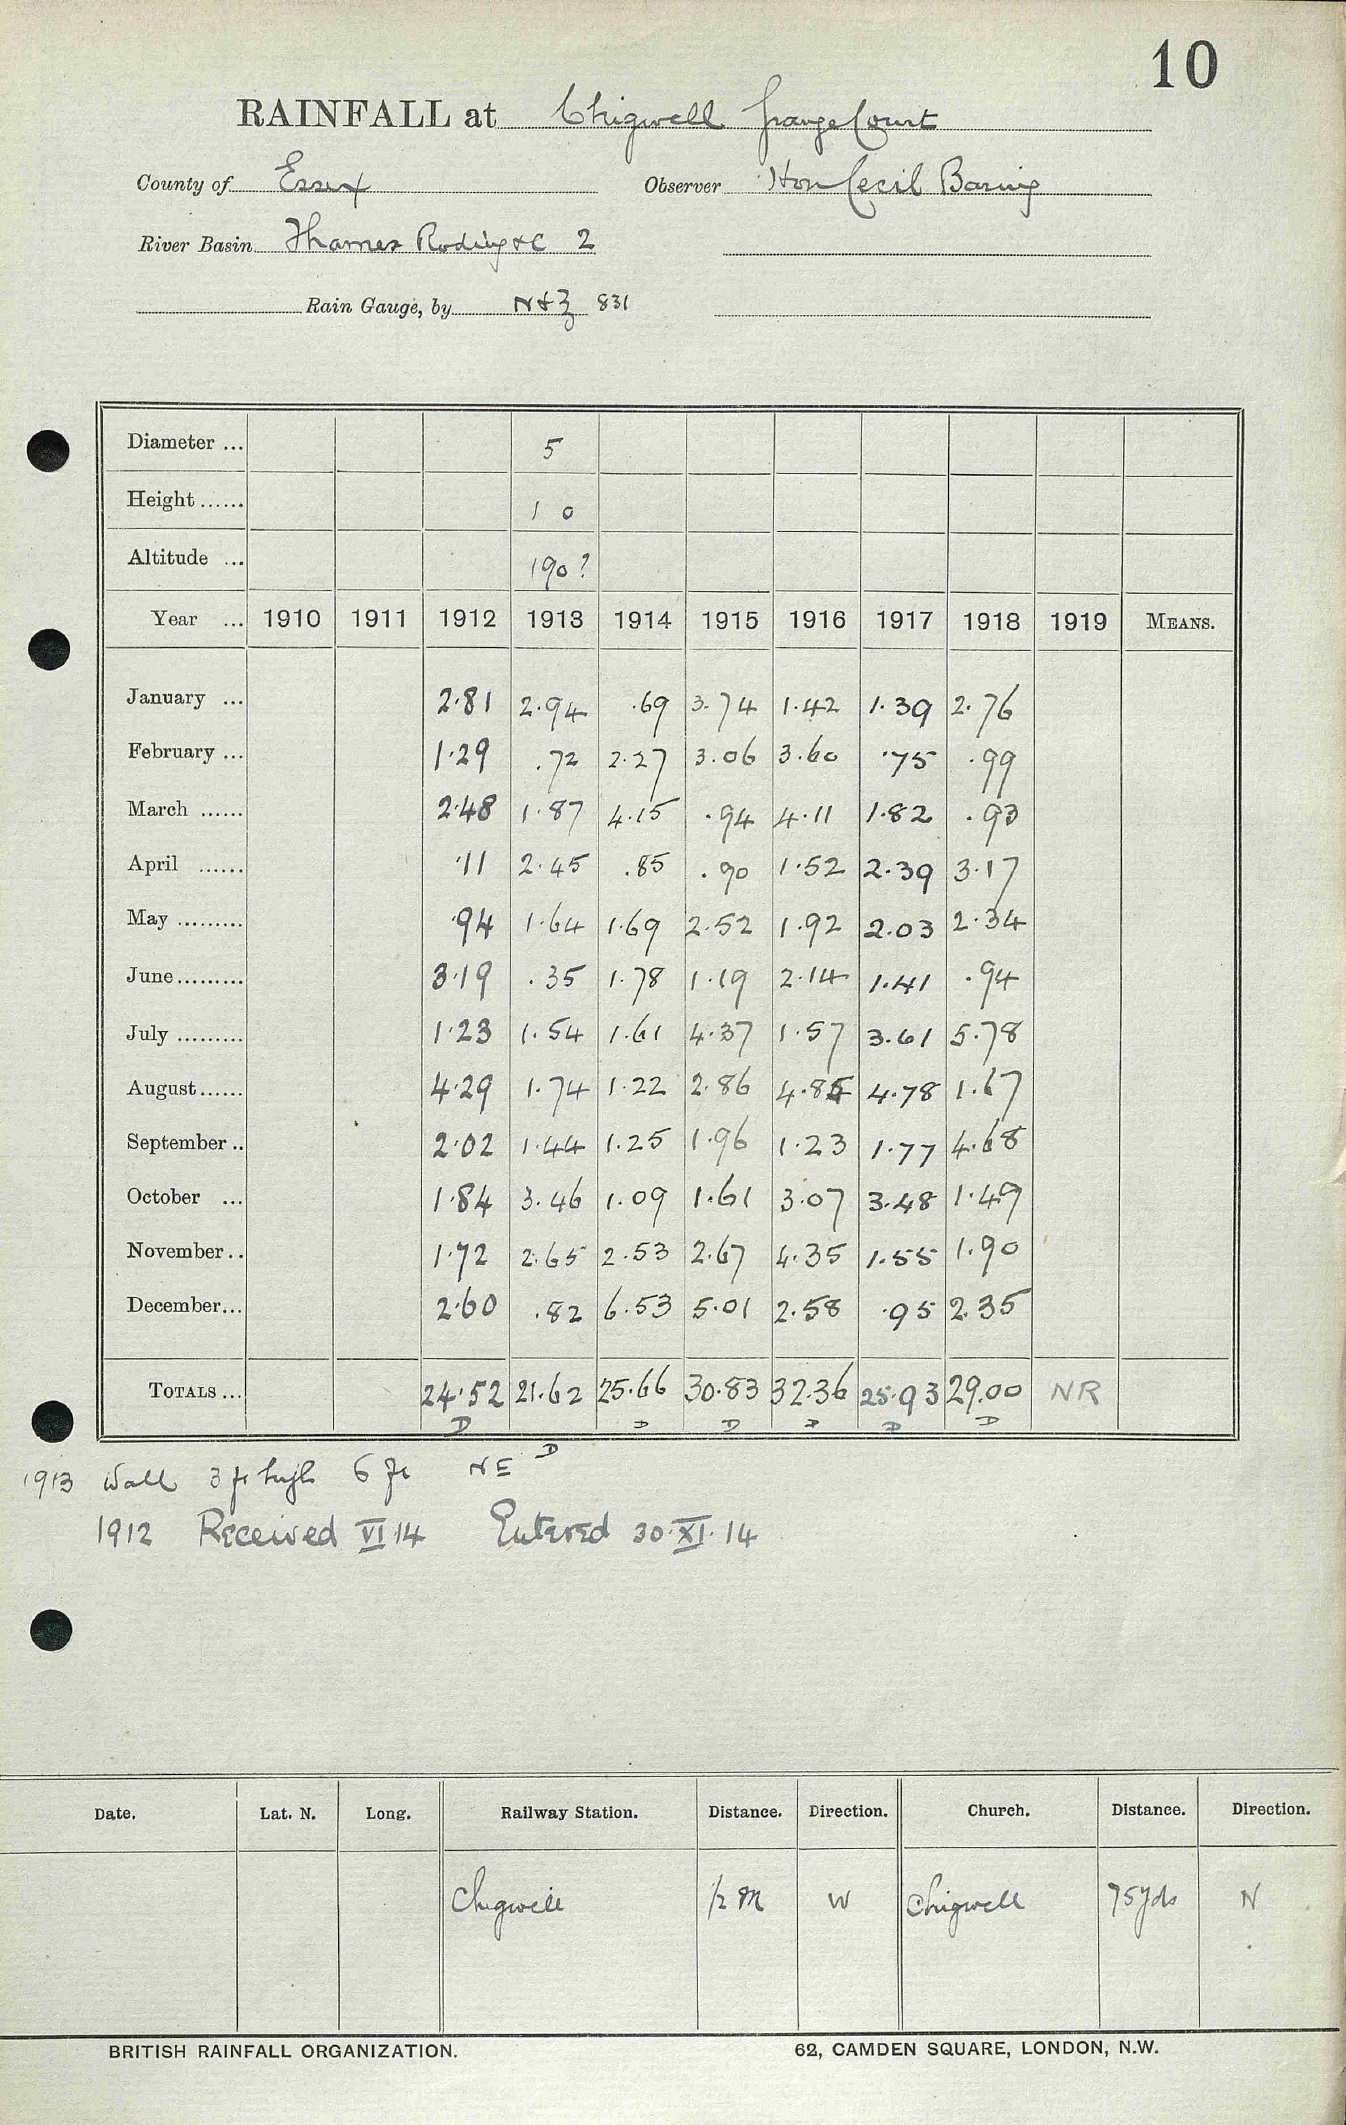 10
RAINFALL at Chigwell Grange Court
County of Essex Observer Hon Cecil Baring
River Basin Thames Roding &c 2
Rain Gauge, by N&Z 831
Diameter ... 5
Height ...... 1 0
Altitude ... 190?
Year ... 1910 1911 1912 1913 1914 1915 1916 1917 1918 1919 MEANS.
January ... 2.81 2.94 .69 3.74 1.42 1.39 2.76
February ... 1.29 .72 2.27 3.06 3.60 .75 .99
March ...... 2.48 1.87 4.15 .94 4.11 1.82 .93
April ...... .11 2.45 .85 .90 1.52 2.39 3.17
May ......... .94 1.64 1.69 2.52 1.92 2.03 2.34
June ......... 3.19 .35 1.78 1.19 2.14 1.41 .94
July ......... 1.23 1.54 1.61 4.37 1.57 3.61 5.78
August ...... 4.29 1.74 1.22 2.86 4.85 4.78 1.67
September .. 2.02 1.44 1.25 1.96 1.23 1.77 4.68
October ... 1.84 3.46 1.09 1.61 3.07 3.48 1.49
November .. 1.72 2.65 2.53 2.67 4.35 1.55 1.90
December ... 2.60 .82 6.53 5.01 2.58 .95 2.35
TOTALS ... 24.52 21.62 25.66 30.83 32.36 25.93 29.00 NR
D D D D D D D
1913 Wall 3 ft high 6 ft NE
1912 Received VI 14 Entered 30.XI.14
Date. Lat. N. Long. Railway Station. Distance. Direction. Church. Distance. Direction.
Chigwell 1/2 M W Chigwell 75 yds N
BRITISH RAINFALL ORGANIZATION. 62, CAMDEN SQUARE, LONDON, N.W.